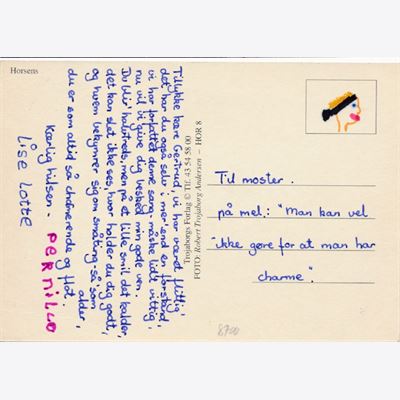 Horsens
Tillykke kære Gertrud, vi har været flittig'
det har du også selv i mer' end en forstand,
vi har forfattet denne sang, måske lidt vittig,
nu vil vi give dig besked min gode ven.
Du bli'r halvtreds, men på et lille smil det kalder,
det kan slet ikke ses, hvor holder du dig godt,
og hvem bekymrer sig om småting så som
alder,
du er som altid så charmerende og flot.
Kærlig hilsen - PERNILLE
Lise Lotte
Trojaborgs Forlag © Tlf. 43 54 58 00
FOTO: Robert Trojaborg Andersen – HOR 8
Til moster.
på mel.: "Man kan vel
ikke gøre for at man har
charme".
8700